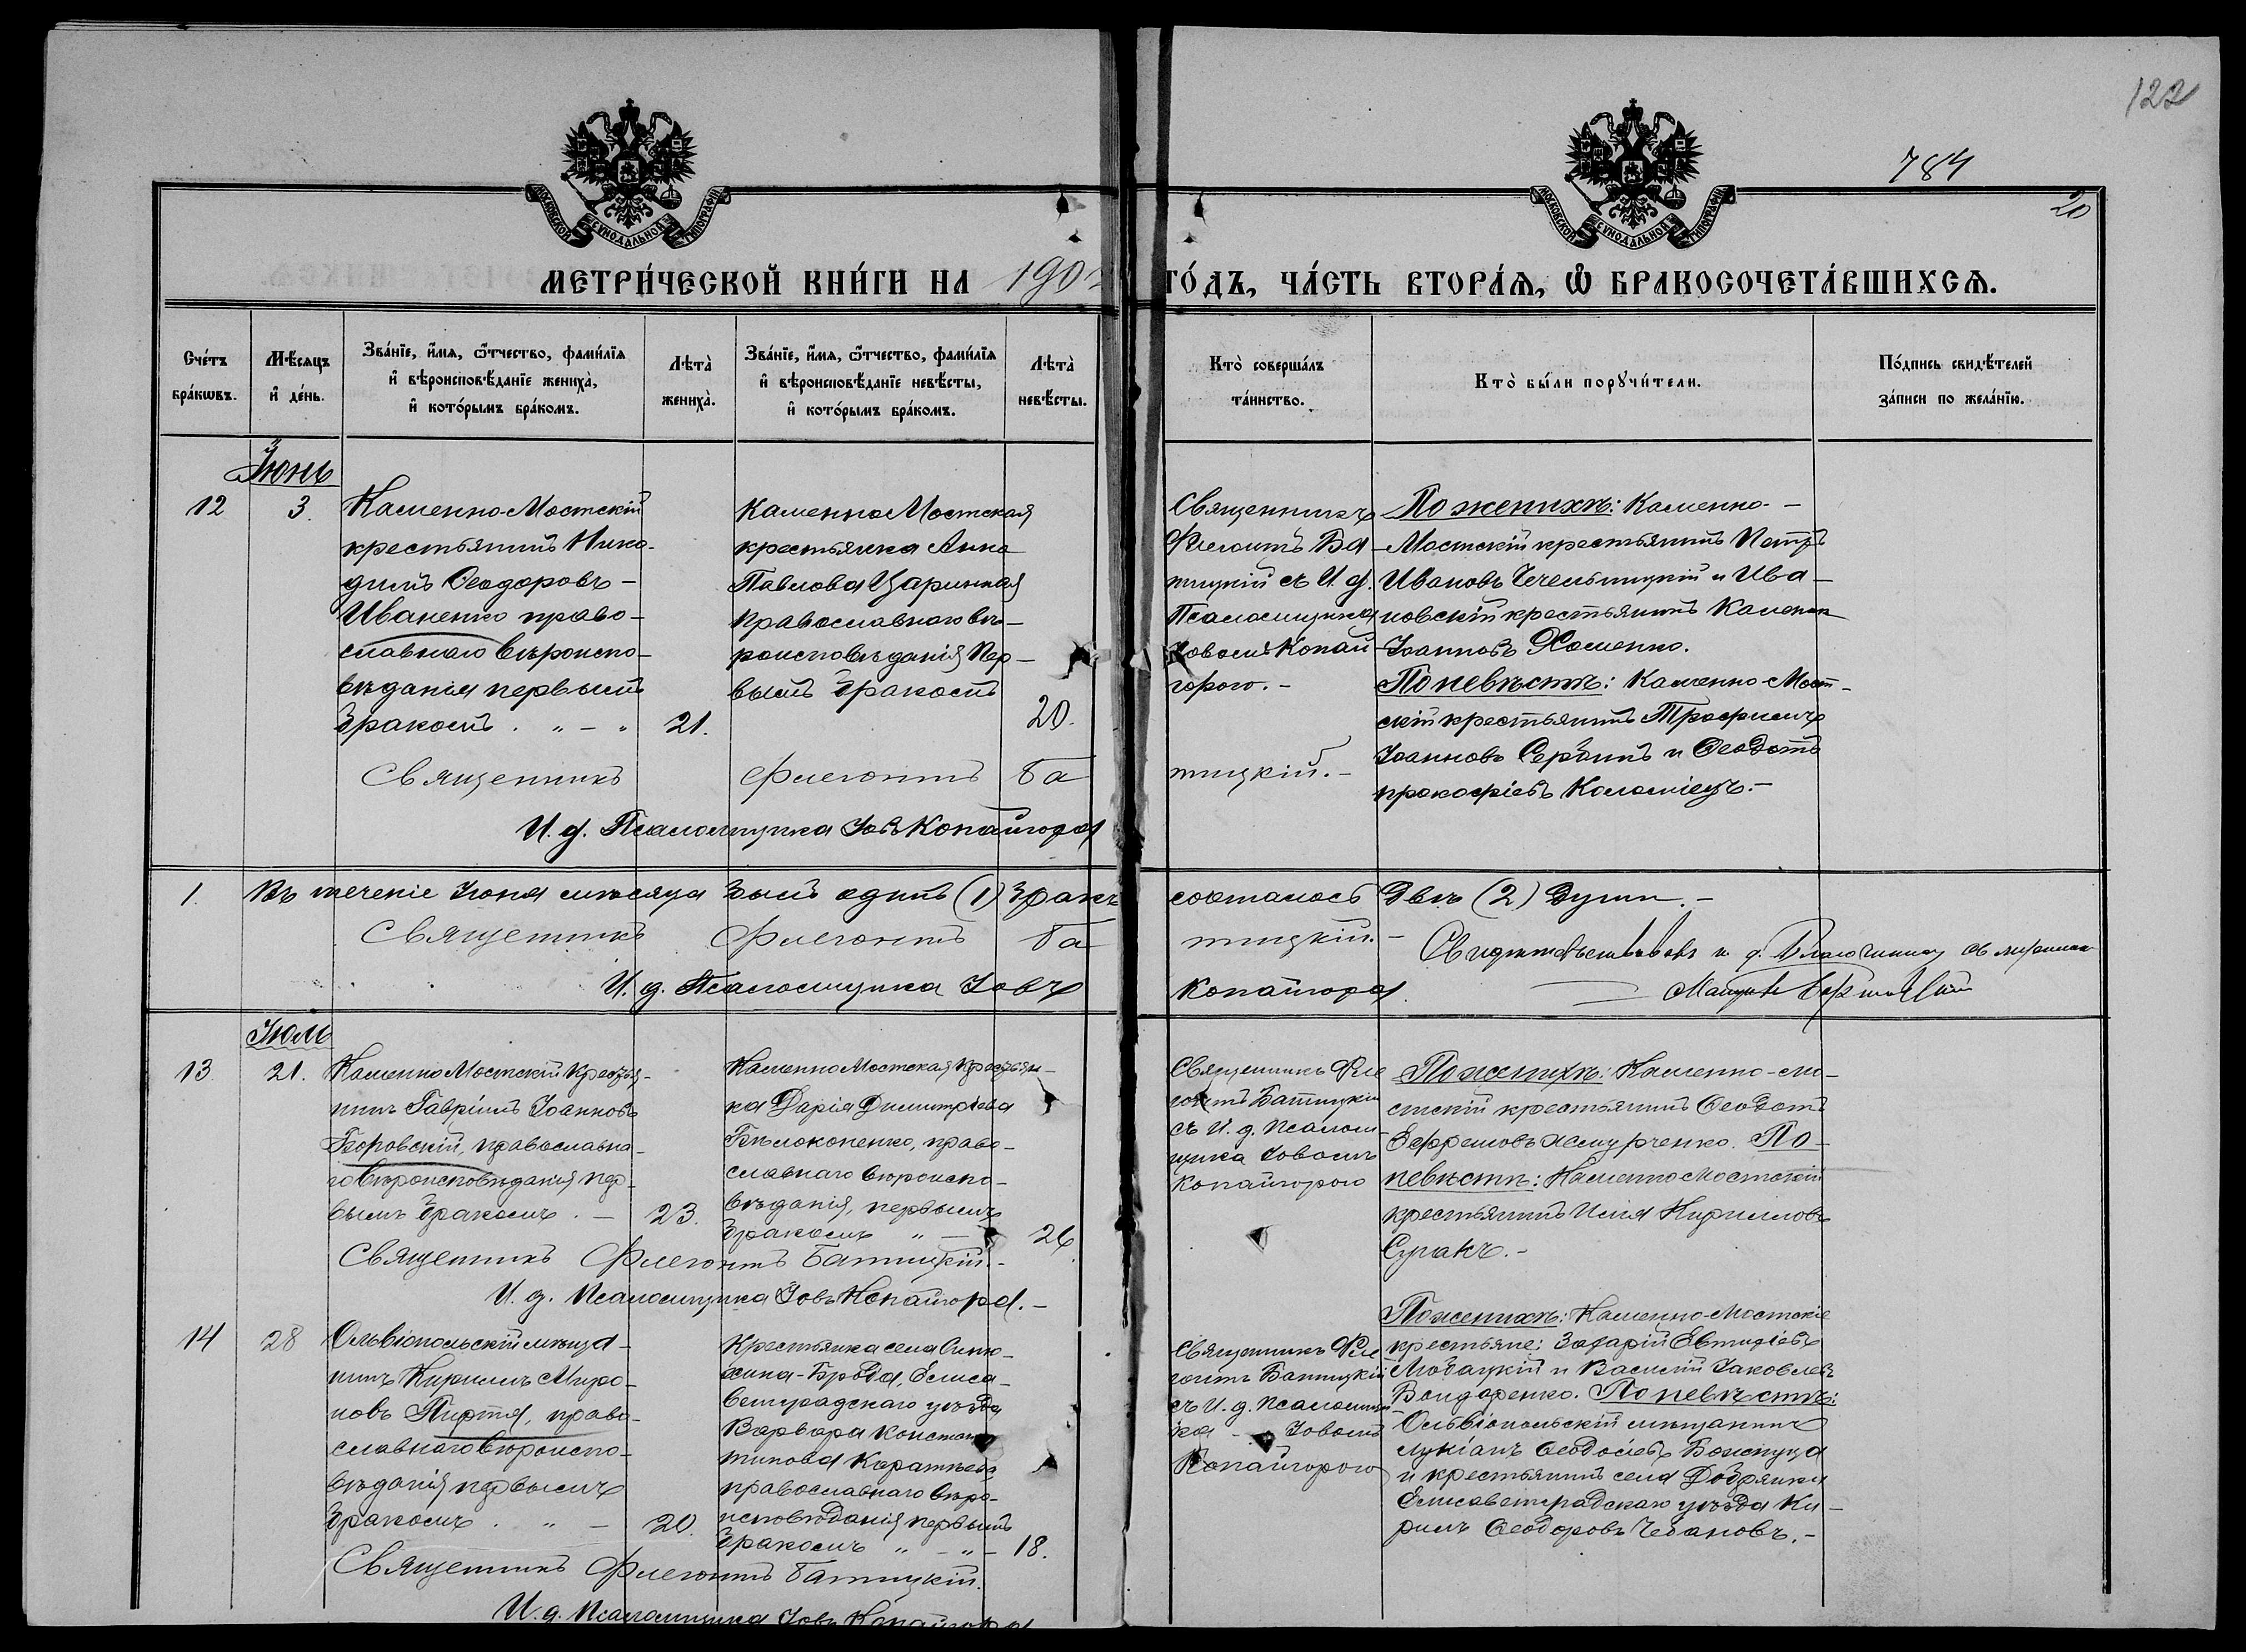 122
784
20
МОСКОВСКОЙ СѴНОДАЛЬНОЙ ТИПОГРАФІИ
МОСКОВСКОЙ СѴНОДАЛЬНОЙ ТИПОГРАФІИ
МЕТРИ́ЧЕСКОЙ КНИ́ГИ НА 190
ГО́ДЪ, ЧА́СТЬ ВТОРА́Ѧ, Ѽ БРАКОСОЧЕТА́ВШИХСѦ.
Сче́тъ бра́кѡвъ.
Мѣ́сяцъ и҆ де́нь.
Зва́нїе, и҆́мѧ, ѻ҆́тчество, фами́лїѧ и҆ вѣроисповѣ́данїе жениха̀, и҆ кото́рымъ бра́комъ.
Лѣ́та̀ жениха̀.
Зва́нїе, и҆́мѧ, ѻ҆́тчество, фами́лїѧ и҆ вѣроисповѣ́данїе невѣ́сты, и҆ кото́рымъ бра́комъ.
Лѣ́та̀ невѣ́сты.
Кто̀ соверша́лъ та́инство.
Кто̀ бы́ли порꙋчи́тели.
По́дпись свидѣ́телей за́писи по жела́нїю.
Іюнь
12
3.
Каменно-Мостскій
крестьянинъ Нико-
димъ Ѳеодоровъ -
Иваненко право-
славнаго вѣроиспо-
вѣданія первымъ
бракомъ . „ - „
21.
Каменно Мостская
крестьянка Анна
Павлова Царинная
православнаго вѣ-
роисповѣданія пер-
вымъ бракомъ
20.
Священникъ
Флегонтъ Ба-
тицкій съ И. д.
Псаломщика
Іовомъ Копай
горою. -
По женихѣ: Каменно-
Мостскій крестьянинъ Петръ
Ивановъ Чечельницкій и Ива-
новскій крестьянинъ
Іоанновъ Хоменко.
По невѣстѣ: Каменно-Мост-
скій крестьянинъ Трофимъ
Іоанновъ Сербинъ и Ѳеодотъ
Прокофіевъ Коломіецъ. -
Священникъ Флегонтъ Батицкій. -
И. д. Псаломщика Іовъ Копайгора
1. Въ теченіе Іюня мѣсяца былъ одинъ (1) бракъ сочталось двѣ (2) души. -
Священникъ Флегонтъ Батицкій. -
И. д. Псаломщика Іовъ Копайгора.
и. д. Благочиннаго
Іюль
13
21.
Каменно Мостскій крестья-
нинъ Гавріилъ Іоанновъ
православна-
го вѣроисповѣданія пер-
вымъ бракомъ . -
23.
Каменно Мостская крестьян-
ка Дарія Димитріева
Бѣлоконенко, право-
славнаго вѣроиспо-
вѣданія, первымъ
бракомъ „ -
26
Священникъ Фле
гонтъ Батицкій
съ И. д. Псалом-
щика Іовомъ
Копайгорою
По женихѣ: Каменно-Мо-
стскій крестьянинъ Ѳеодотъ
Ефремовъ По
невѣстѣ: Каменно Мостскій
крестьянинъ Илія Кирилловъ
Сугакъ. -
Священникъ Флегонтъ Батицкій. -
И. д. Псаломщика Іовъ Копайгора. -
14
28
Ольвіопольскій мѣща-
нинъ Кириллъ Миро-
новъ право-
славнаго вѣроиспо-
вѣданія первымъ
бракомъ . „ -
20.
Крестьянка села Синю-
хина-Брода, Елиса-
ветградскаго уѣзда
Варвара Констан
тинова
православнаго вѣро-
исповѣданія первымъ
бракомъ „ - „ -
18.
Священникъ Фле
гонтъ Батицкій
съ И. д. Псаломщи
ка - Іовомъ
Копайгорою
По женихѣ: Каменно-Мостскіе
крестьяне: Захарій Евтихіевъ
Любацкій и Василій Іаковлевъ
Бондаренко. По невѣстѣ:
Ольвіопольскій мѣщанинъ
Лукіанъ Ѳеодосіевъ
и крестьянинъ села Добрянки
Елисаветградскаго уѣзда Ки-
рилъ Ѳеодоровъ Чебановъ. -
Священникъ Флегонтъ Батицкій.
И. д. Псаломщика Іовъ Копайгора